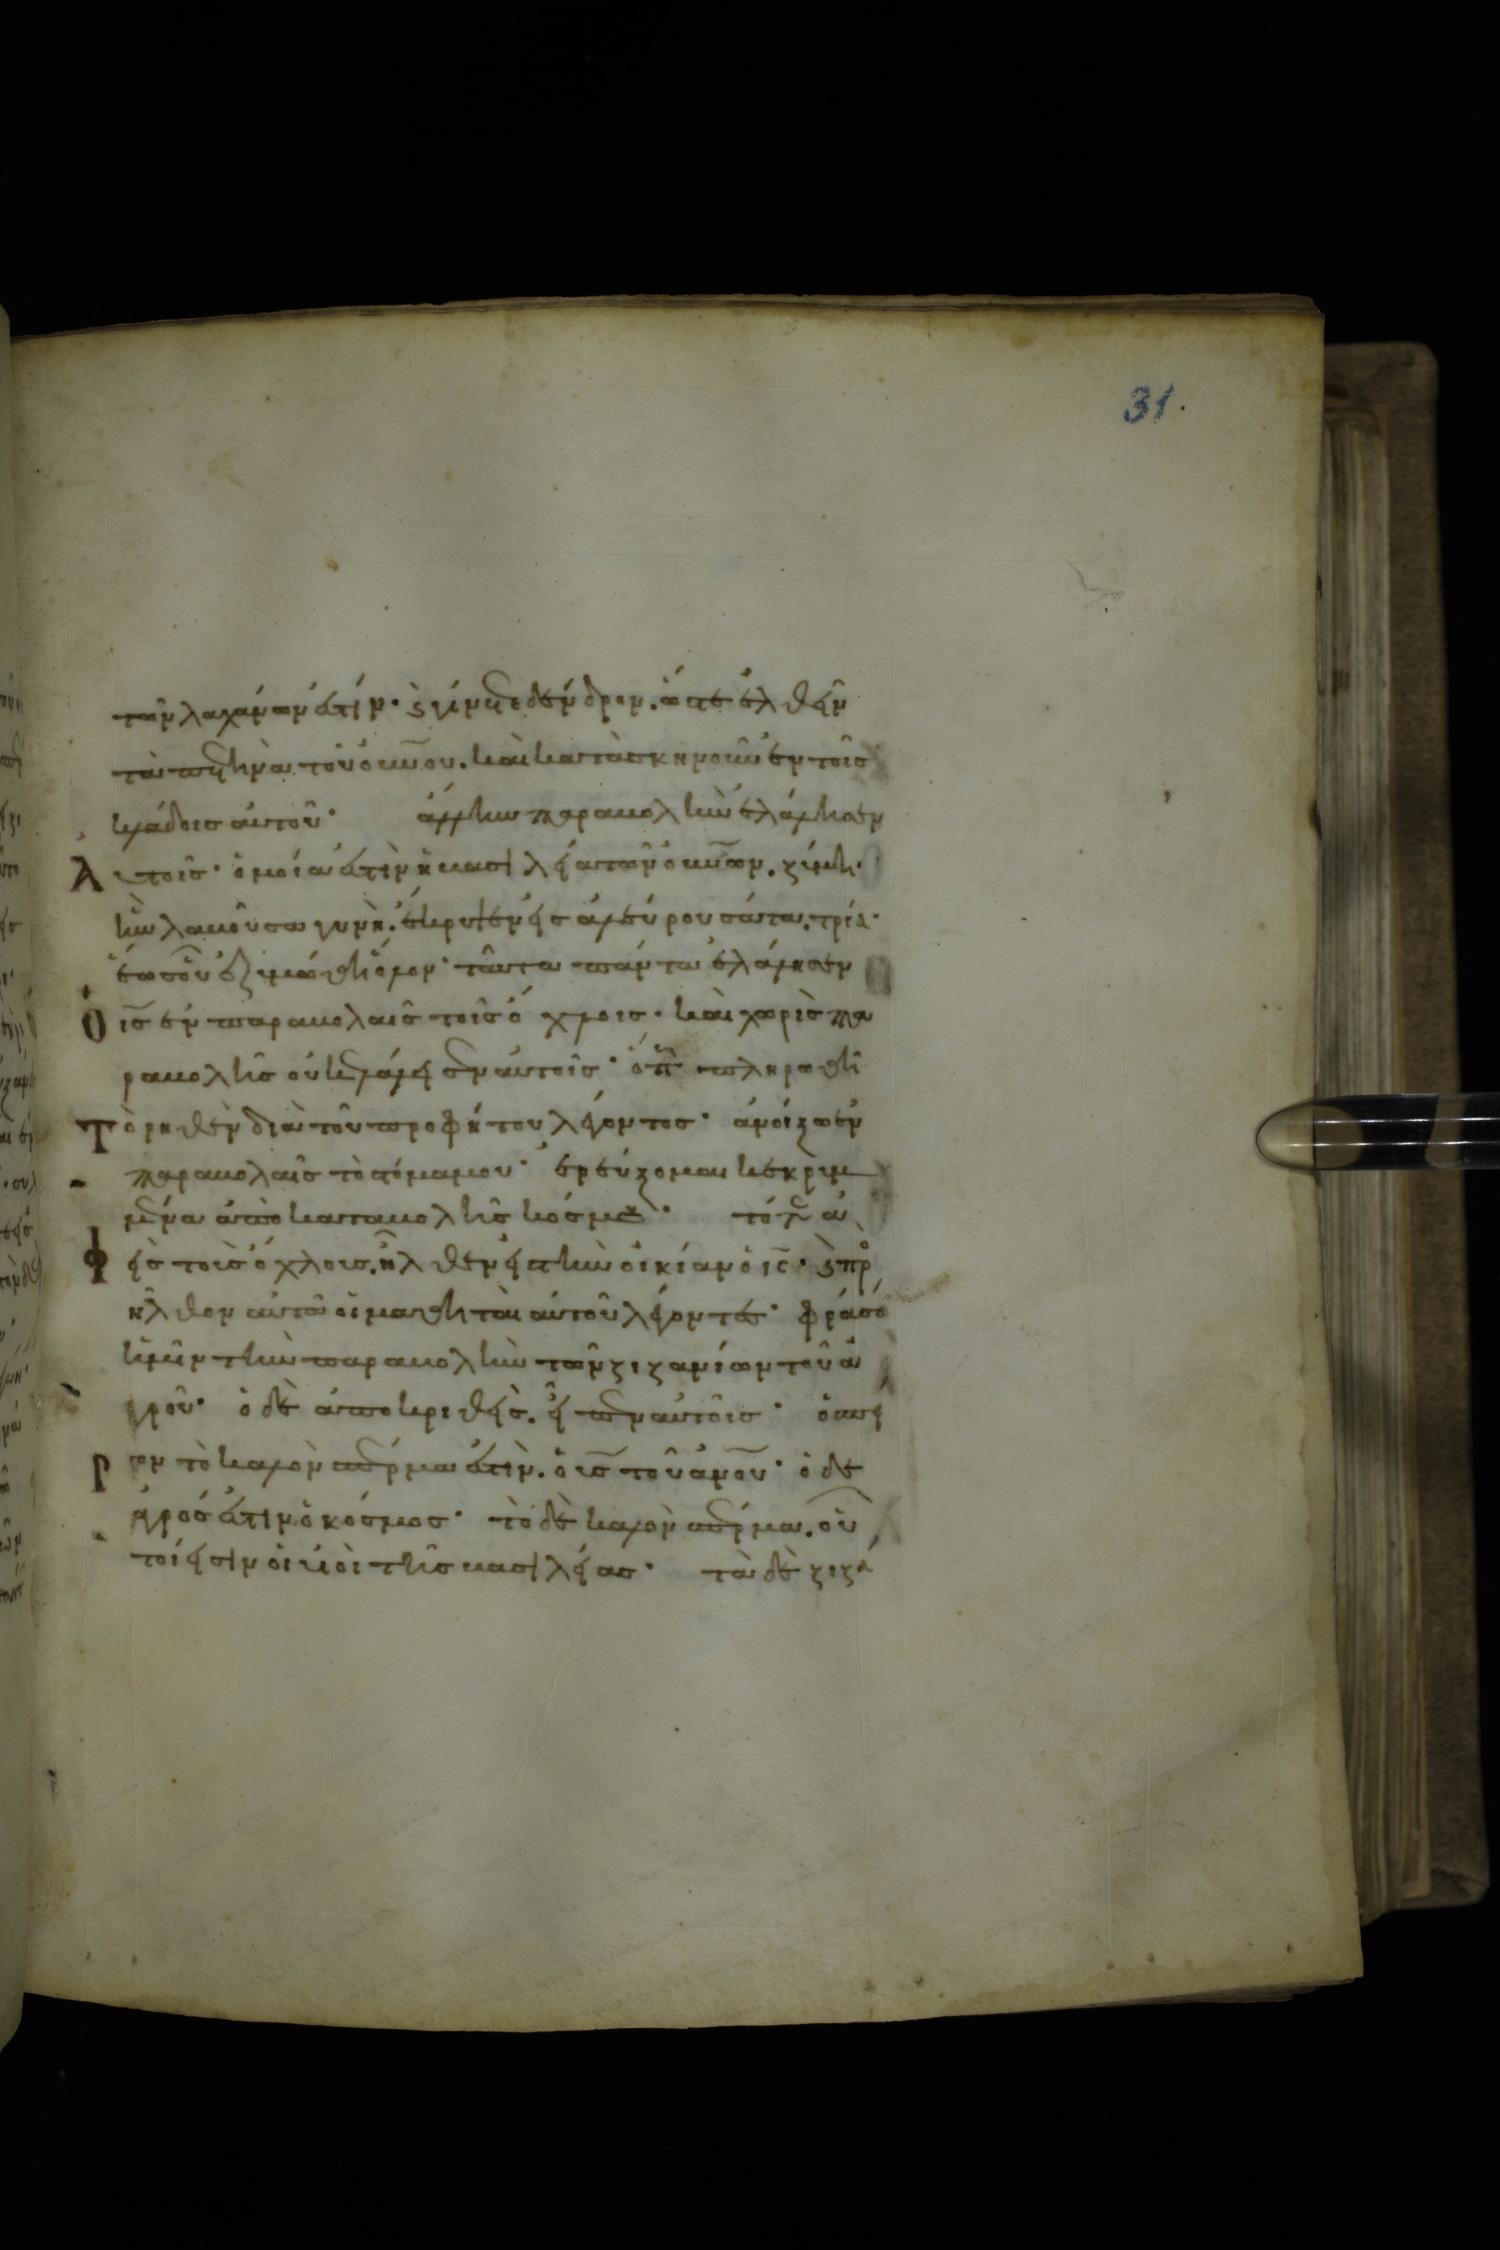 31.
τῶν λαχάνων ἐστίν· ϗ γίνεται δένδρον. ὥστε ἐλθεῖν
τὰ πετεινὰ τοῦ οὐνου. καὶ κατασκηνοῦν ἐν τοῖς
κλάδοις αὐτοῦ· ἄλλην παραβολὴν ἐλάλησεν
Αυτοῖς· ὁμοία ἐστὶν ἡ βασιλεία τῶν οὐνῶν. ζύμη·
ἣν λαβοῦσα γυνὴ. ἐνέκρυψεν εἰς ἀλεύρου σάτα. τρία·
ἕως οὗ ἐζυμώθη ὅλον· ταῦτα πάντα ἐλάλησεν
Ὁ ις ἐν παραβολαῖς τοῖς ὄχλοις· καὶ χωρὶς πα
ραβολῆς οὐκ ἐλάλει αὐτοῖς· ὅπως πληρωθῆ
Τὸ ρηθὲν διὰ τοῦ προφήτου λέγοντος· ἀνοίξω ἐν
παραβολαῖς τὸ στόμα μου· ἐρεύξομαι κεκρυμ
μένα ἀπὸ καταβολῆς κόσμου· τότε ἀ
Φεὶς τοὺς ὄχλους. ἦλθεν εἰς τὴν οἰκίαν ὁ ις· ϗ προσ
ῆλθον αὐτῶ οἱ μαθηταὶ αὐτοῦ λέγοντες· φράσο
ἡμῖν τὴν παραβολὴν τῶν ζιζανίων τοῦ ἀ
γροῦ· ὁ δὲ ἀποκριθεὶς. εἶπεν αὐτοῖς· ὁ σπεί
Ρων τὸ καλὸν σπέρμα ἐστὶν. ὁ υς τοῦ ἀνου· ὁ δὲ
ἀγρός ἐστιν ὁ κόσμος· τὸ δὲ καλὸν σπέρμα. οὗ
τοί εἰσιν οἱ υἱοὶ τῆς βασιλείας· τὰ δὲ ζιζά